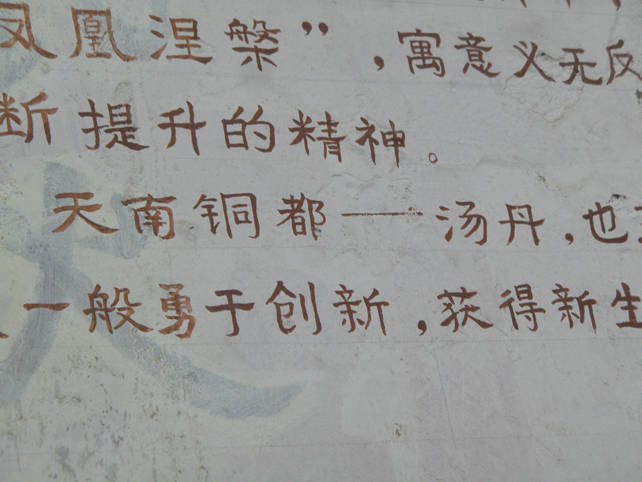 凤凰涅槃”,寓意义无反
断提升的精神。
天南铜都——汤丹,也
一般勇于创新,获得新生